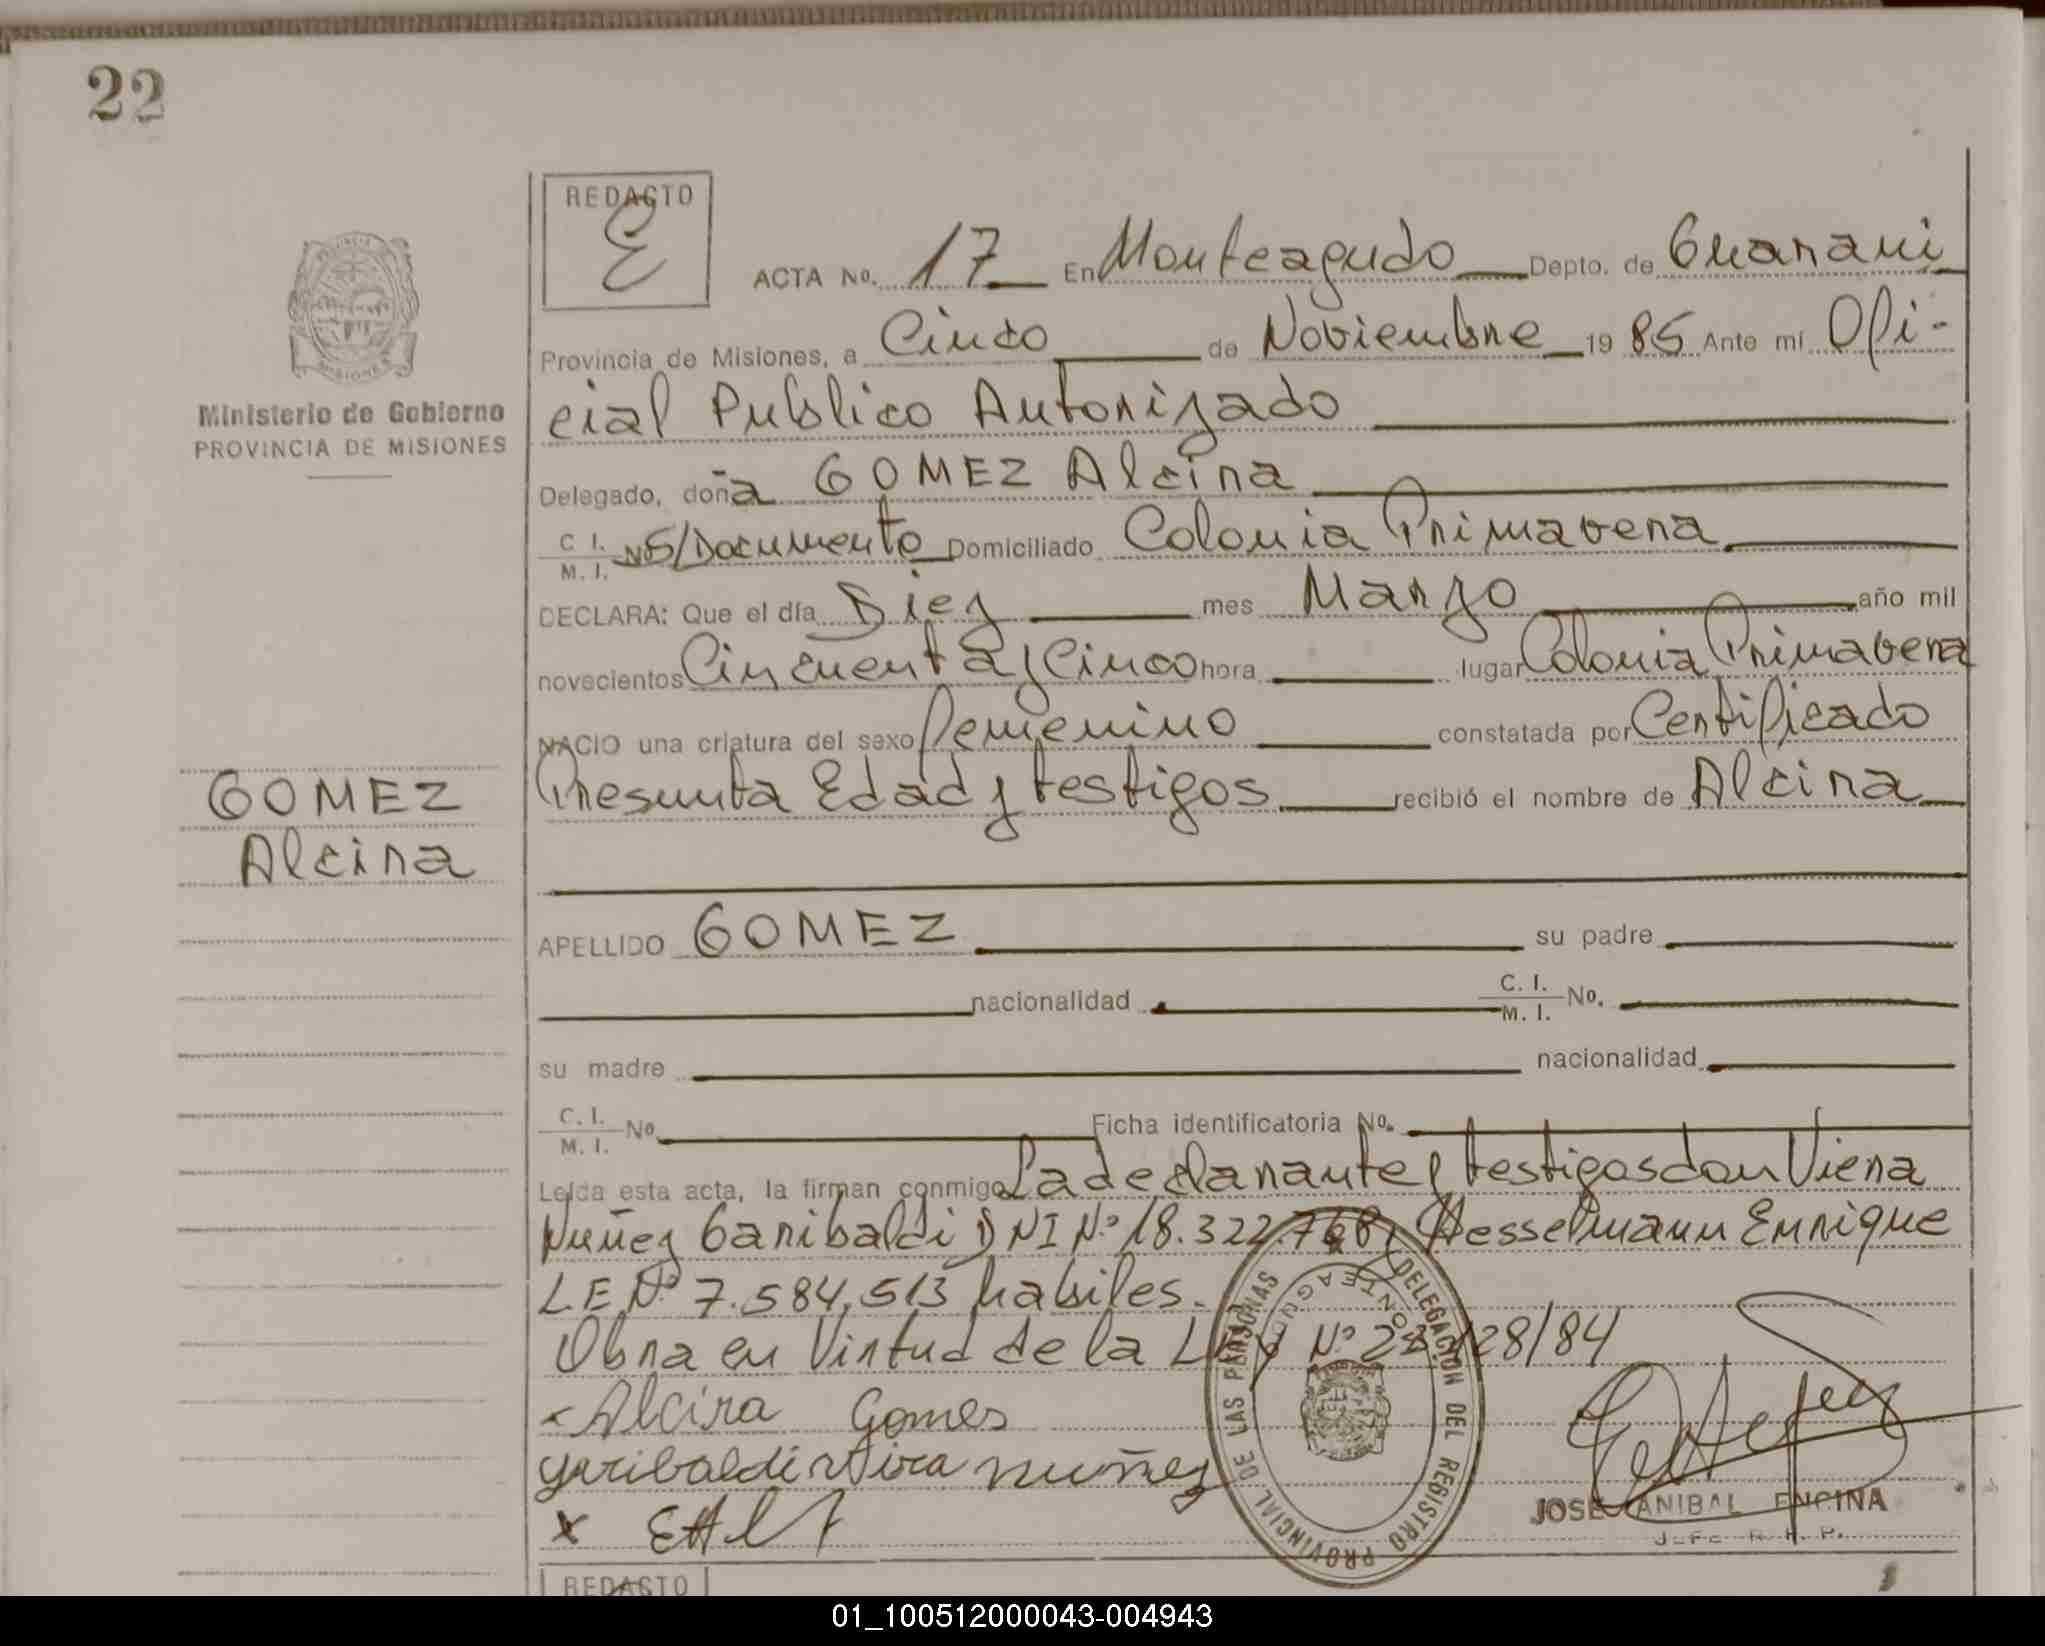 22
REDACTO
E
ACTA No. 17 En Monteagudo Depto. de Guarani
Provincia de Misiones, a Cinco de Noviembre 1985 Ante mí Ofi-
cial Publico Autorizado
Ministerio de Gobierno
PROVINCIA DE MISIONES
Delegado, doña GOMEZ Alcira
C. I. M. I. No S/Documento Domiciliado Colonia Primavera
DECLARA: Que el día Diez mes Marzo año mil
novecientos Cincuenta y Cinco hora lugar Colonia Primavera
NACIO una criatura del sexo femenino constatada por Certificado
Presunta Edad y testigos recibió el nombre de Alcira
GOMEZ
Alcira
APELLIDO GOMEZ su padre
nacionalidad C. I. M. I. No.
su madre nacionalidad
C. I. M. I. No Ficha identificatoria No.
Leída esta acta, la firman conmigo La declarante y testigos don Viera
Nuñez Garibaldi DNI Nº 18.322.768 y Hesselmann Enrique
L.E. Nº 7.584.513 habiles.
Obra en Virtud de la Ley Nº 23128/84
Alcira Gomes
garibaldi Viera nuñez
x
DELEGACION DEL REGISTRO PROVINCIAL DE LAS PERSONAS
MONTEAGUDO
JOSE ANIBAL ENCINA
REDACTO
01_100512000043-004943